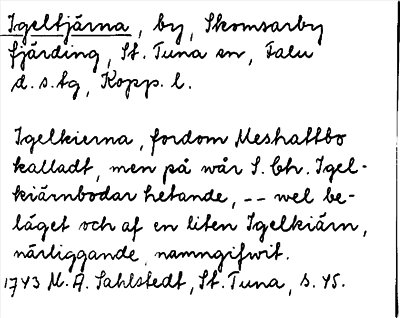 Igeltjärna, by, Skomsarby
fjärding, St. Tuna sn, Falu
d.s.tg, Kopp. l.
Igelkierna, fordom Meshattbo
kalladt, men på wår S. Chr. Igel-
kiärnbodar hetande, -- wel be-
läget och af en liten Igelkiärn,
närliggande, namngifwit.
1743 M. A. Sahlstedt, St. Tuna, s. 45.